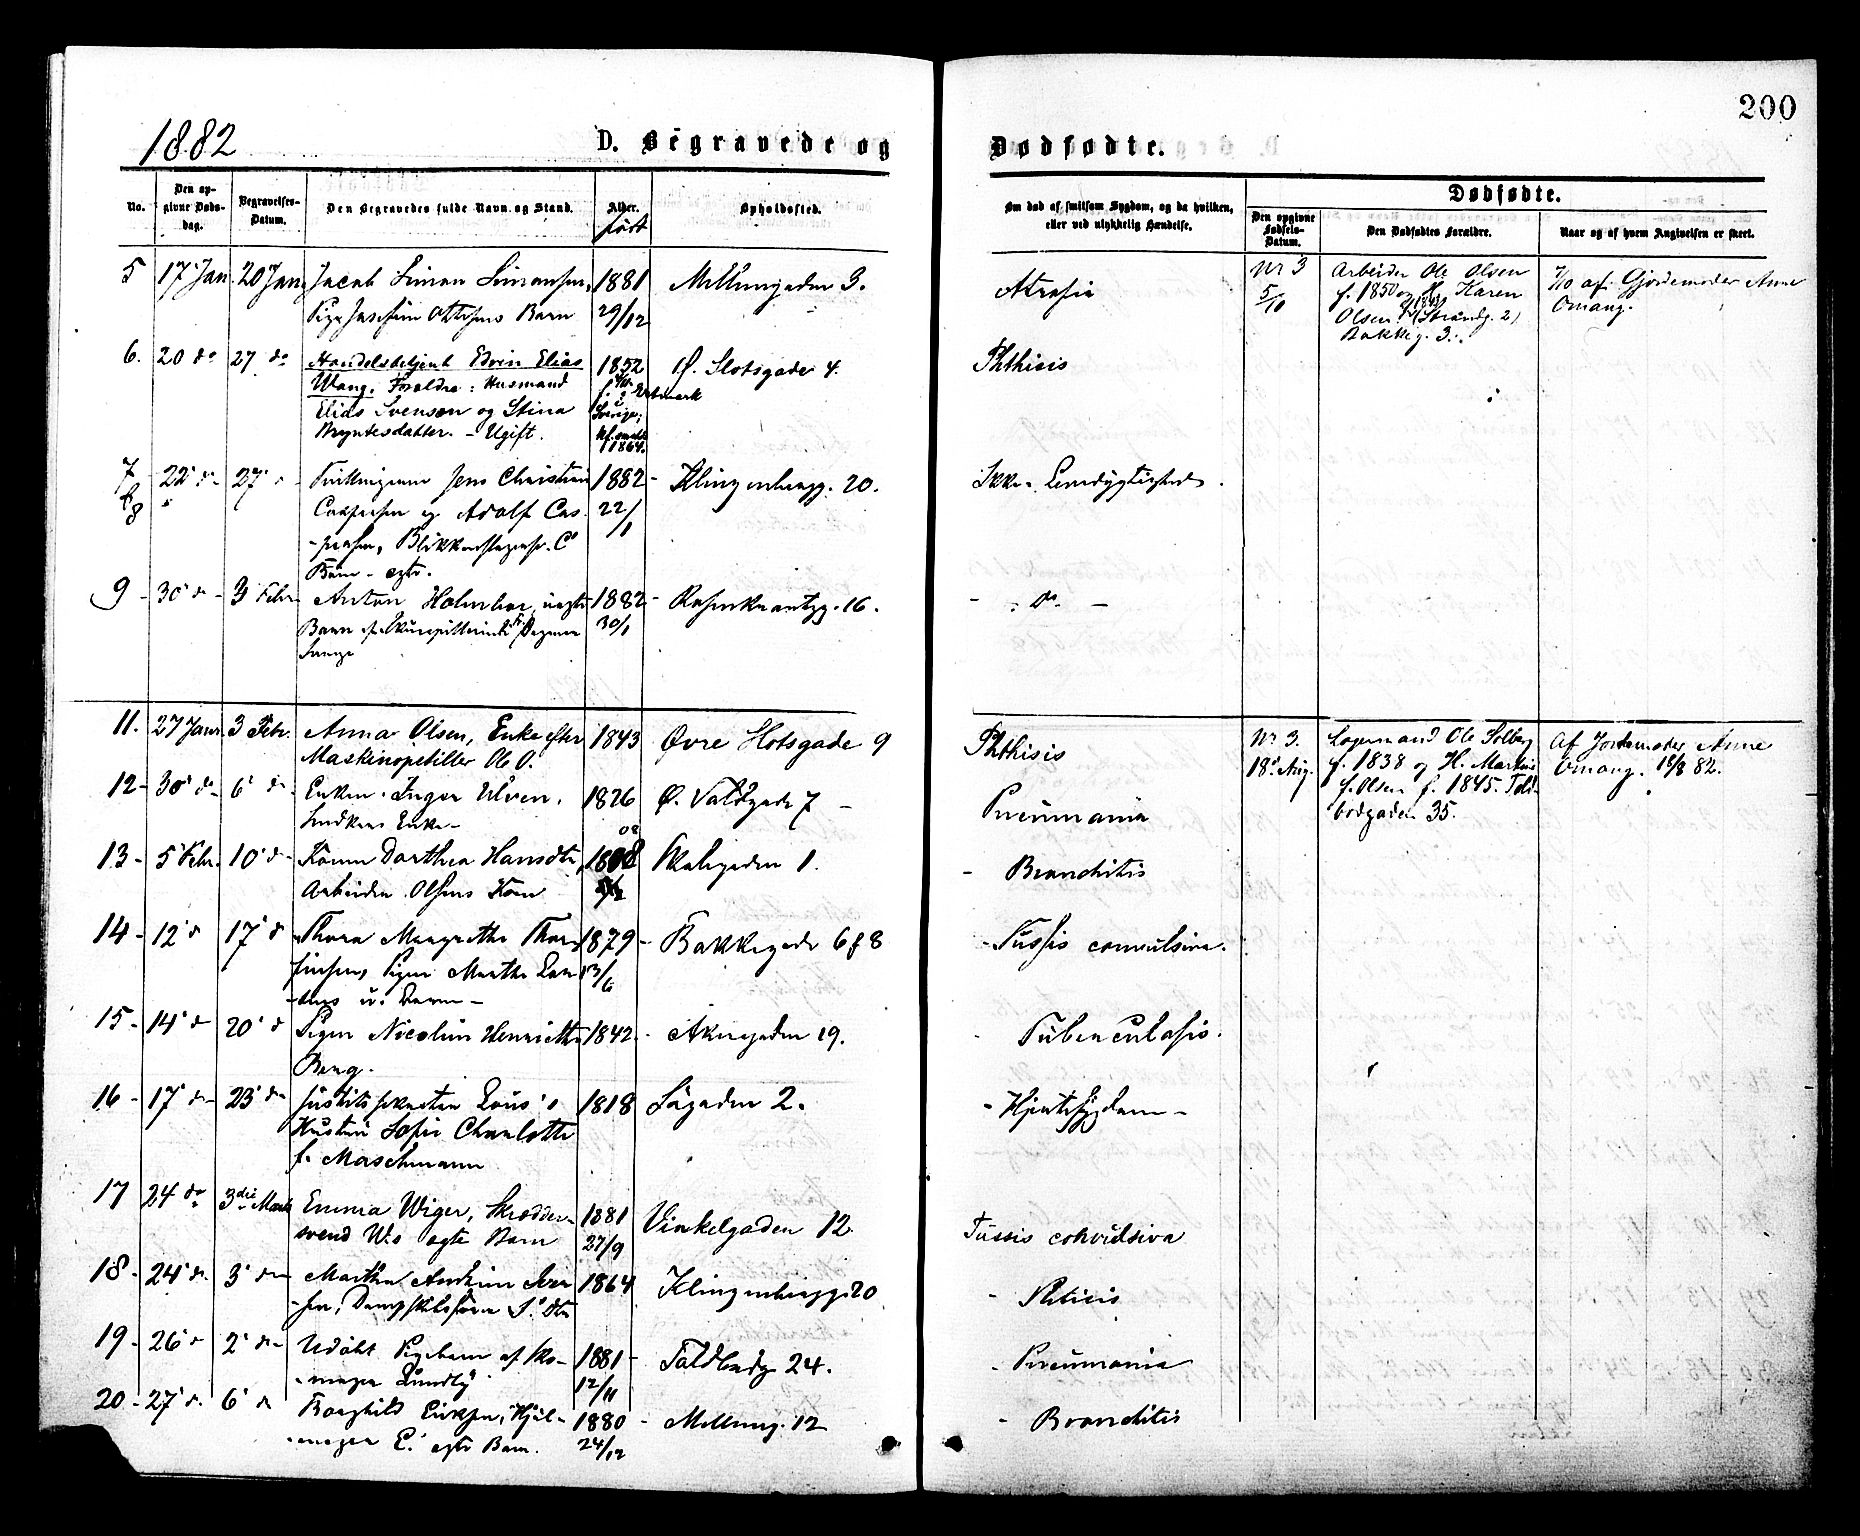 200
1882
D. Begravede og
Dødfødte.
No.
Den op-
givne Døds-
dag.
Begravelses-
Datum.
Den Begravedes fulde Navn og Stand.
Alder.
født
Opholdssted.
Om død af smitsom Sygdom, og da hvilken,
eller ved ulykkelig Hændelse.
Dødfødte.
Den opgivne
Fødsels-
Datum.
Den Dødfødtes Forældre.
Naar og af hvem Angivelsen er skeet.
5 17 Jan 20 Jan Jacob Simon Simonsen, 1881 Møllergaden 3. Atrofia
Pige Josefine Ottesens Barn 29/12
Nr 3 Arbeider Ole Olsen 7/10 af Gjordemoder Anne
5/10 f. 1850 og H. Karen Omang.
Olsen f. 1843 (Strandg. 2)
Bakkeg. 3.
6. 20 do 27 do Handelsbetjent Edvin Elias 1852 Ø. Slotsgade 4. Phthisis
Wang. Forældre: Husmand
Elias Svenson og Stina Sverige;
Bryntesdatter. - Ugift. 1864.
7 22 d- 27 d- Tvillingerne Jens Christian 1882 - Klingenbergg. 20. Ikke Levedygtighed.
& 8 Caspersen og Adolf Cas- 22/1
-persen, Blikkenslagersv. C's
Børn - ægte.
9 - 30 d- 3 Febr. Anton Holmboe, uægte 1882 - Rosenkrantzg. 16. - : do. -
Barn af Skuespillerinde Fr. Dagmar 30/1
11. 27 Janr. 3 Febr. Anna Olsen, Enke efter 1843 Øvre Slotsgade 9 Phthisis
Maskinopstiller Ole O.
Nr 3. Lagermand Ole Solberg Af Jordemoder Anne
18 Aug. f. 1838 og H. Martine Omang. 18/8 82.
f. Olsen f. 1845. Told-
bodgaden 35.
12 - 30 d- 6 d- Enken Inger Ulven, 1826 Ø. Voldgade 7 - Pneumonia
Enke -
13 - 5 Febr. 10 d- Konen Dorthea Hansdtr, 1808 08 Skolegaden 1. - Bronchitis
Arbeider Olsens Kone
14 - 12 d 17 d Thora Margrethe Thor- 1879 - Bakkegade 6 & 8 - Tussis convulsiva.
finsen, Pigen Marthe 13/6
u. Barn -
15 - 14 d- 20 d Pigen Nicoline Henriette 1842. - Akersgaden 19. - Tuberculosis.
Berg.
16 - 17 d- 23 d- Justitssekretær Lous's 1818 Søgaden 2. - Hjertesygdom -
Hustru Sofie Charlotte
f. Maschmann
17 24 do 3die Marts Emma Wiger, Skrædder- 1881 Vinkelgaden 12. Tussis convulsiva
svend W.s ægte Barn 27/9
18 - 24 d- 3 d- Martha Andrine Iver- 1864 Klingenbergg 20 - Phtisis
-sen, Dampskibsfører I.'s Dtr
19 - 26 d 2 d- Udøbt Pigebarn af Sko- 1881 - Toldbodg 24. - Pneumonia
-mager Lundby 12/11
20 - 27 d. 6 d Borghild Eriksen, Hjul- 1880 - Møllerg. 12 - Bronchitis
-mager E.'s ægte Barn. 24/12